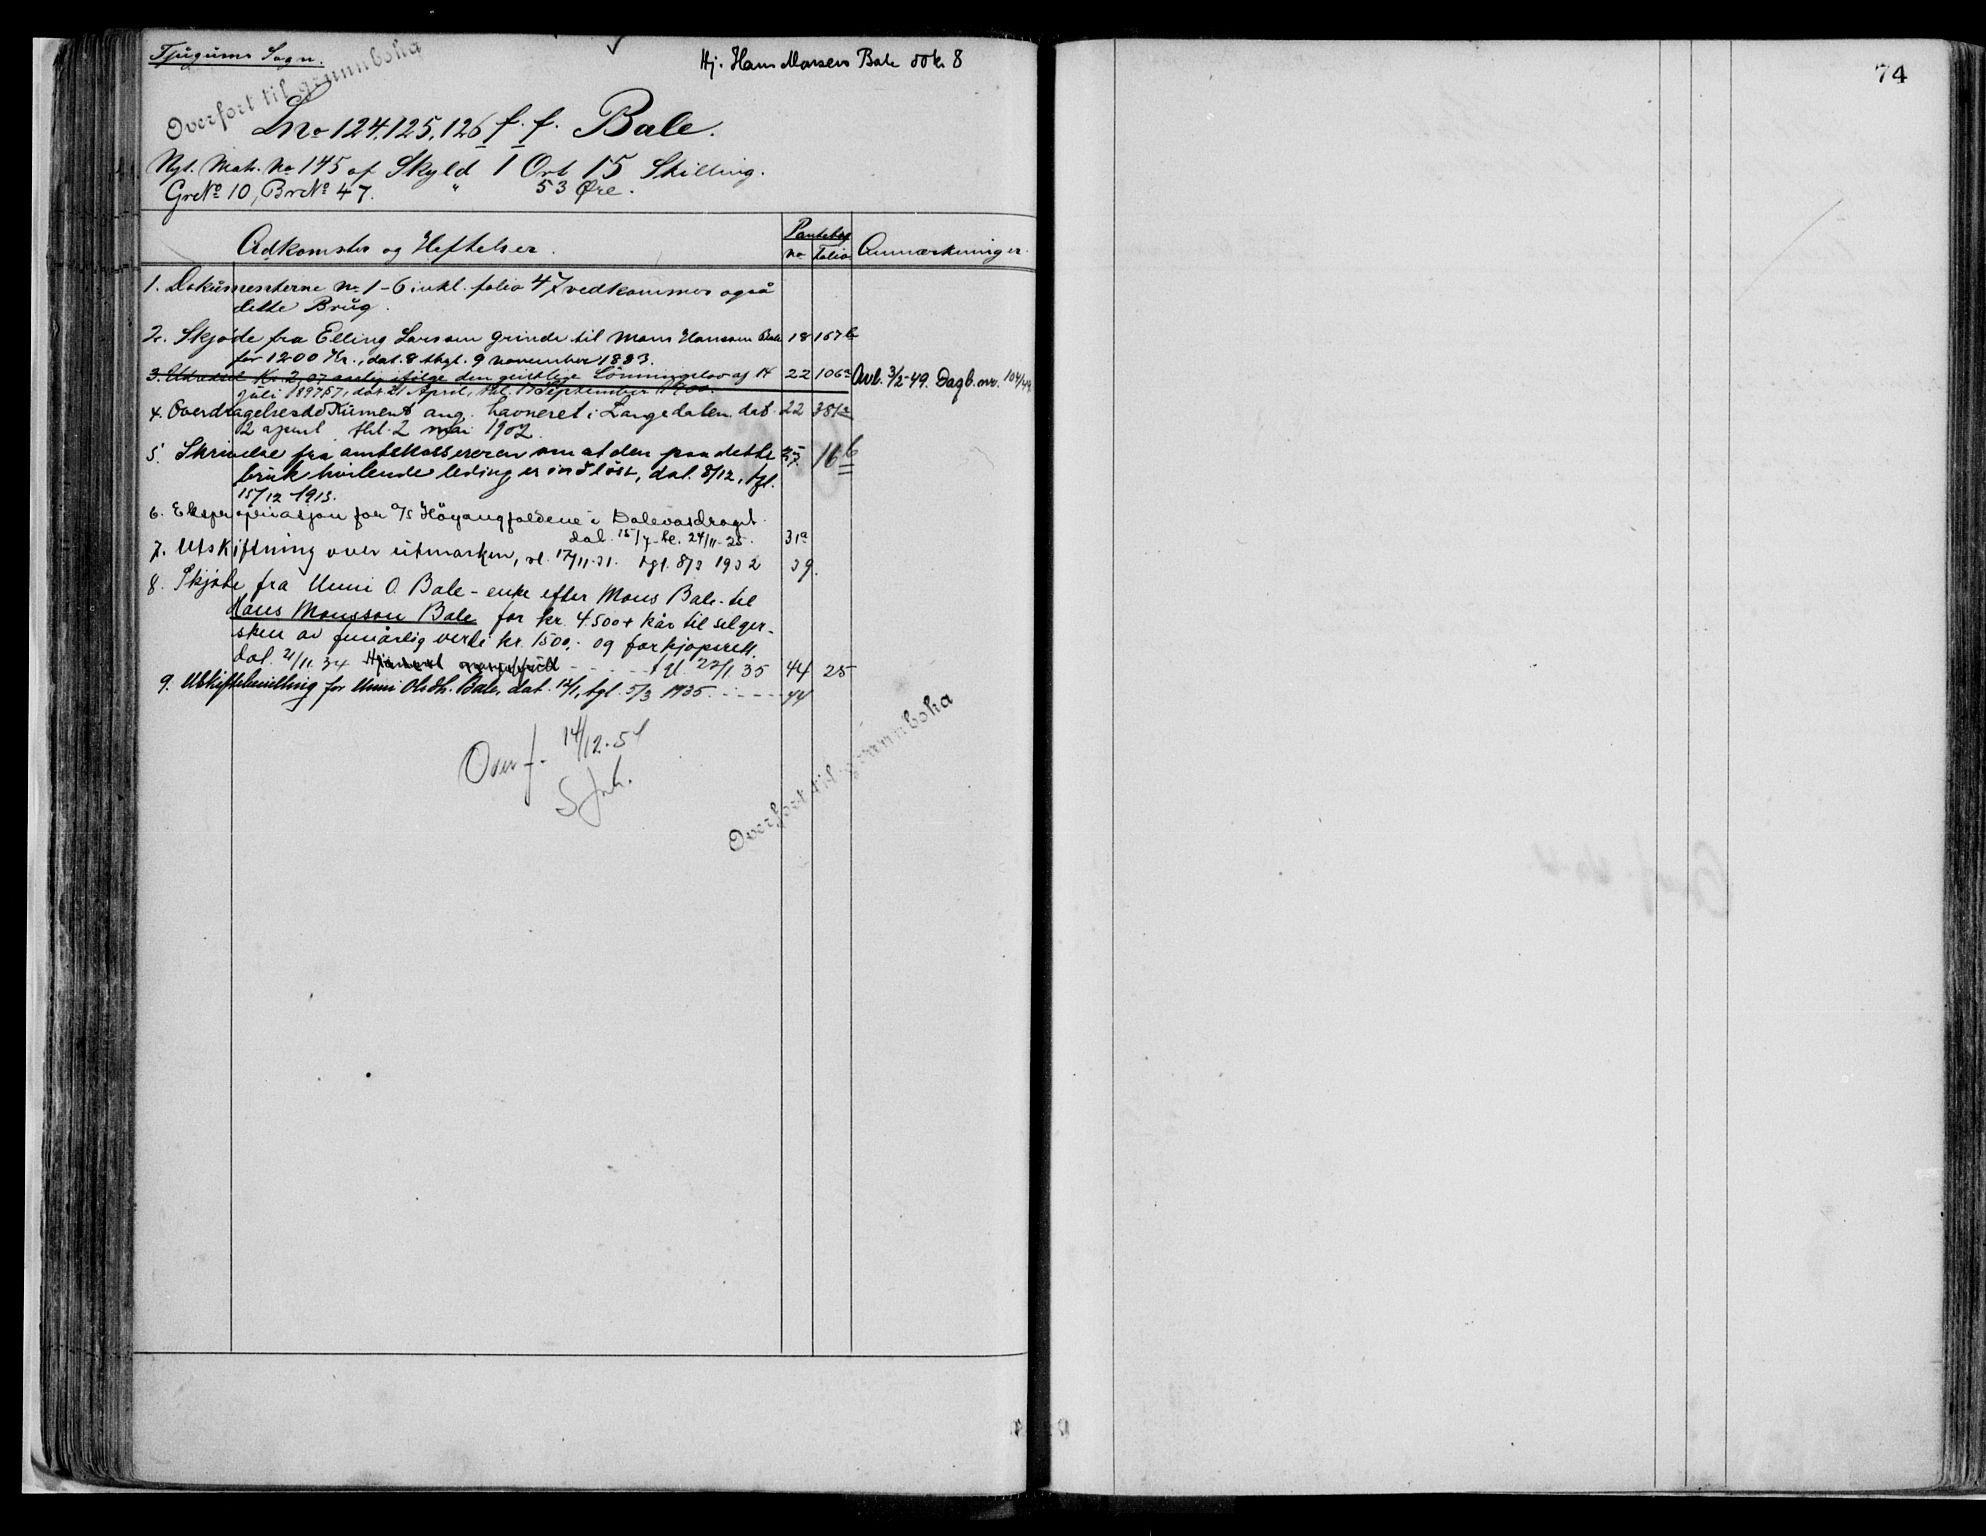 Tjugums Sogn.
Overført til grunnboka
Hj. Hans Monsen Bale dok 8
74
Lno 124, 125, 126 f. f. Bale.
Nyt. Matr. No 145 af Skyld 1 Ort 15 Skilling.
GrNo 10, BrNo 47. " 53 Øre.
Adkomster og Heftelser.
Pantebog
no Folio
Anmærkninger.
1. Dokumenterne No 1-6 inkl. folio 47 vedkommer også
dette Brug.
2. Skjøde fra Elling Larssen Grinde til Mons Hanssen Bale 18 167b
for 1200 Kr., dat. 8 thgl. 9 november 1883.
3. Udredsel Kr 2,07 aarlig ifølge den geistlige Lønningslov af 14 22 106a Avl. 3/2-49. Dagb. nr. 104/49
juli 1897 § 7, dat. 21 April, thl. 17 September 1900.
4. Overdragelsesdokument ang. havneret i Langedalen dat. 22 381a
2 april thl. 2 mai 1902.
5. Skrivelse fra amtskassereren om at den paa dette 27 16b
bruk hvilende leding er indløst, dat. 8/12, tgl.
15/12 1913.
6. Ekspropriasjon for A/S Høyangfaldene i Dalevasdraget
dat. 15/7- tl. 24/11-25. 31a
7. Utskiftning over utmarken, sl. 17/11-31. tgl. 8/3 1932 39.
8. Skjøte fra Unni O. Bale - enke efter Mons Bale - til
Hans Monsson Bale for kr. 4500 + kår til selger-
sken av femårlig verdi kr. 1500,- og forkjøpsrett.
dat. 21/11. 34 - - - - tgl. 22/1 35 44 25
9. Uskiftebevilling for Unni Olsdt. Bale, dat. 12/1, tgl. 5/3 1935. - - - - 44
Overf. 14/12-54
S Joh.
Overført til grunnboka